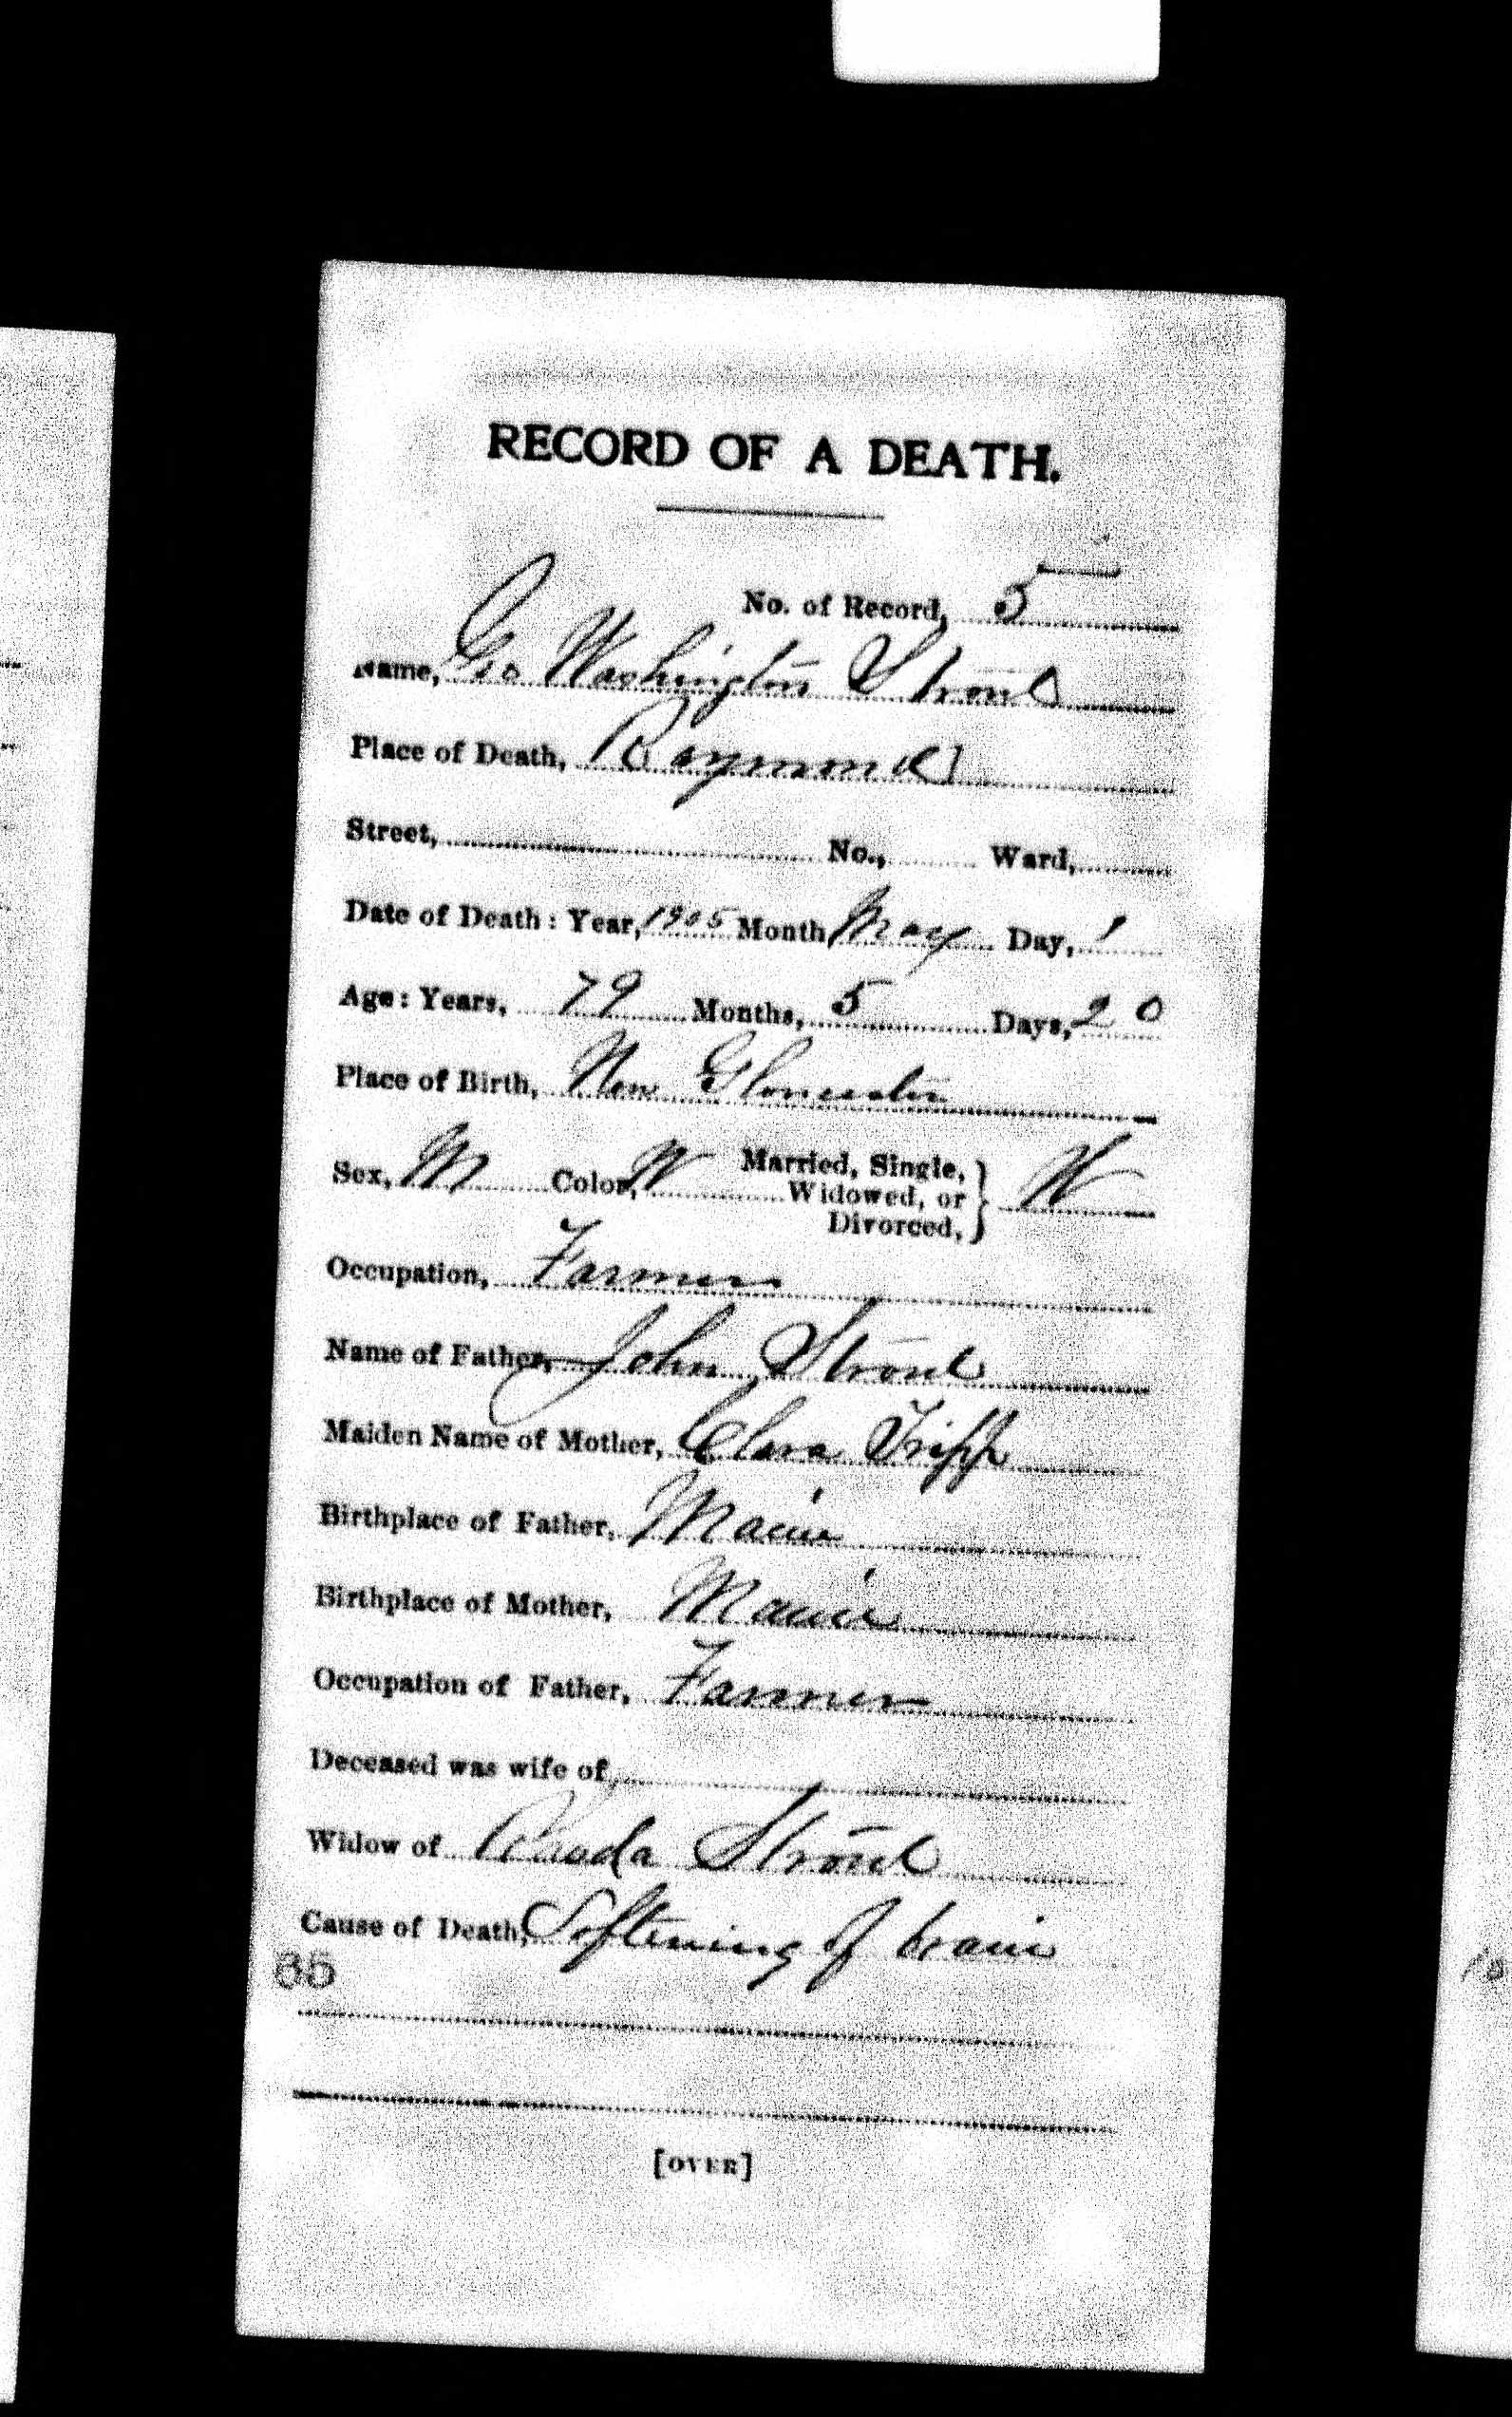 RECORD OF A DEATH.
No. of Record, 5
Name, Geo Washington Strout
Place of Death, Raymond
Street, No., Ward,
Date of Death: Year, 1905 Month May Day, 1
Age: Years, 79 Months, 5 Days, 20
Place of Birth, New Gloucester
Sex, M Color, W Married, Single, Widowed, or Divorced, } W
Occupation, Farmer
Name of Father, John Strout
Maiden Name of Mother, Clara Tripp
Birthplace of Father, Maine
Birthplace of Mother, Maine
Occupation of Father, Farmer
Deceased was wife of,
Widow of Strout
Cause of Death, Softening of brain
65
[OVER]